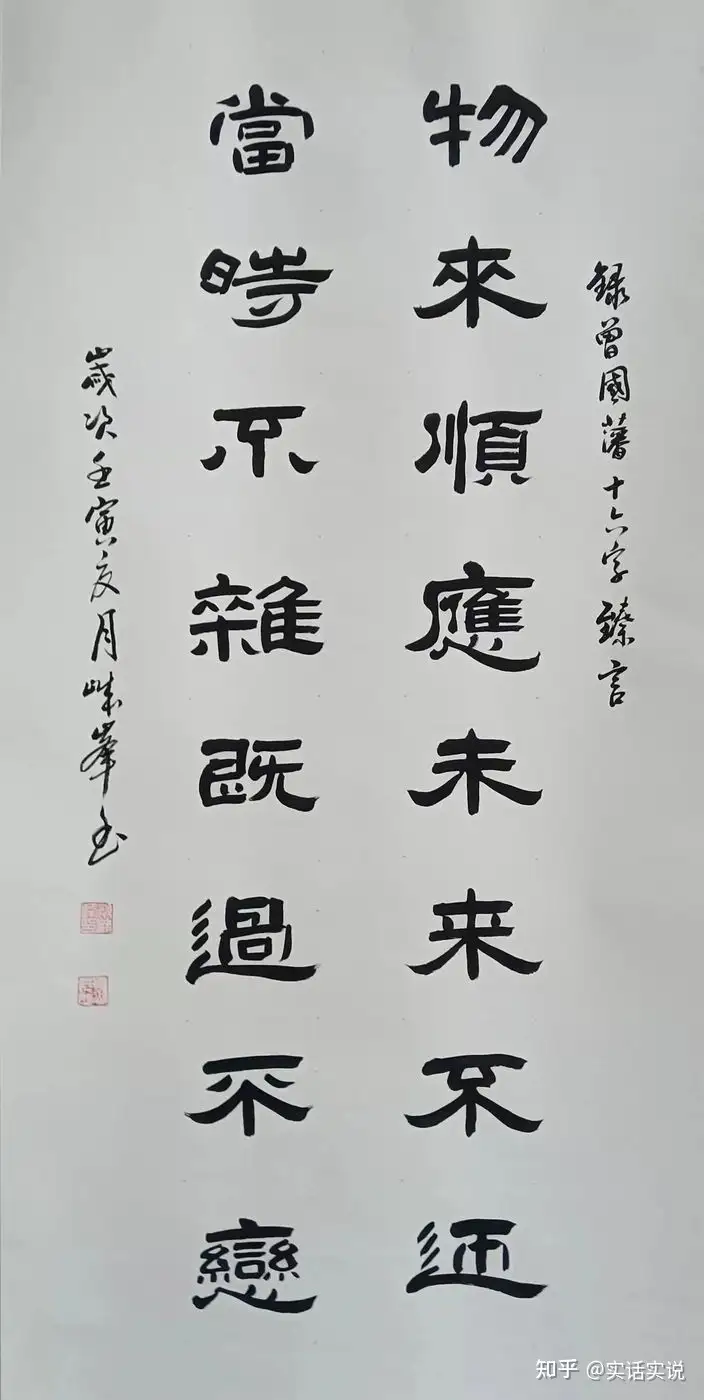 録曾國藩十六字臻言
物來順應未来不迎
當時不雜既過不戀
歲次壬寅夏月峸峯
知乎 @实话实说